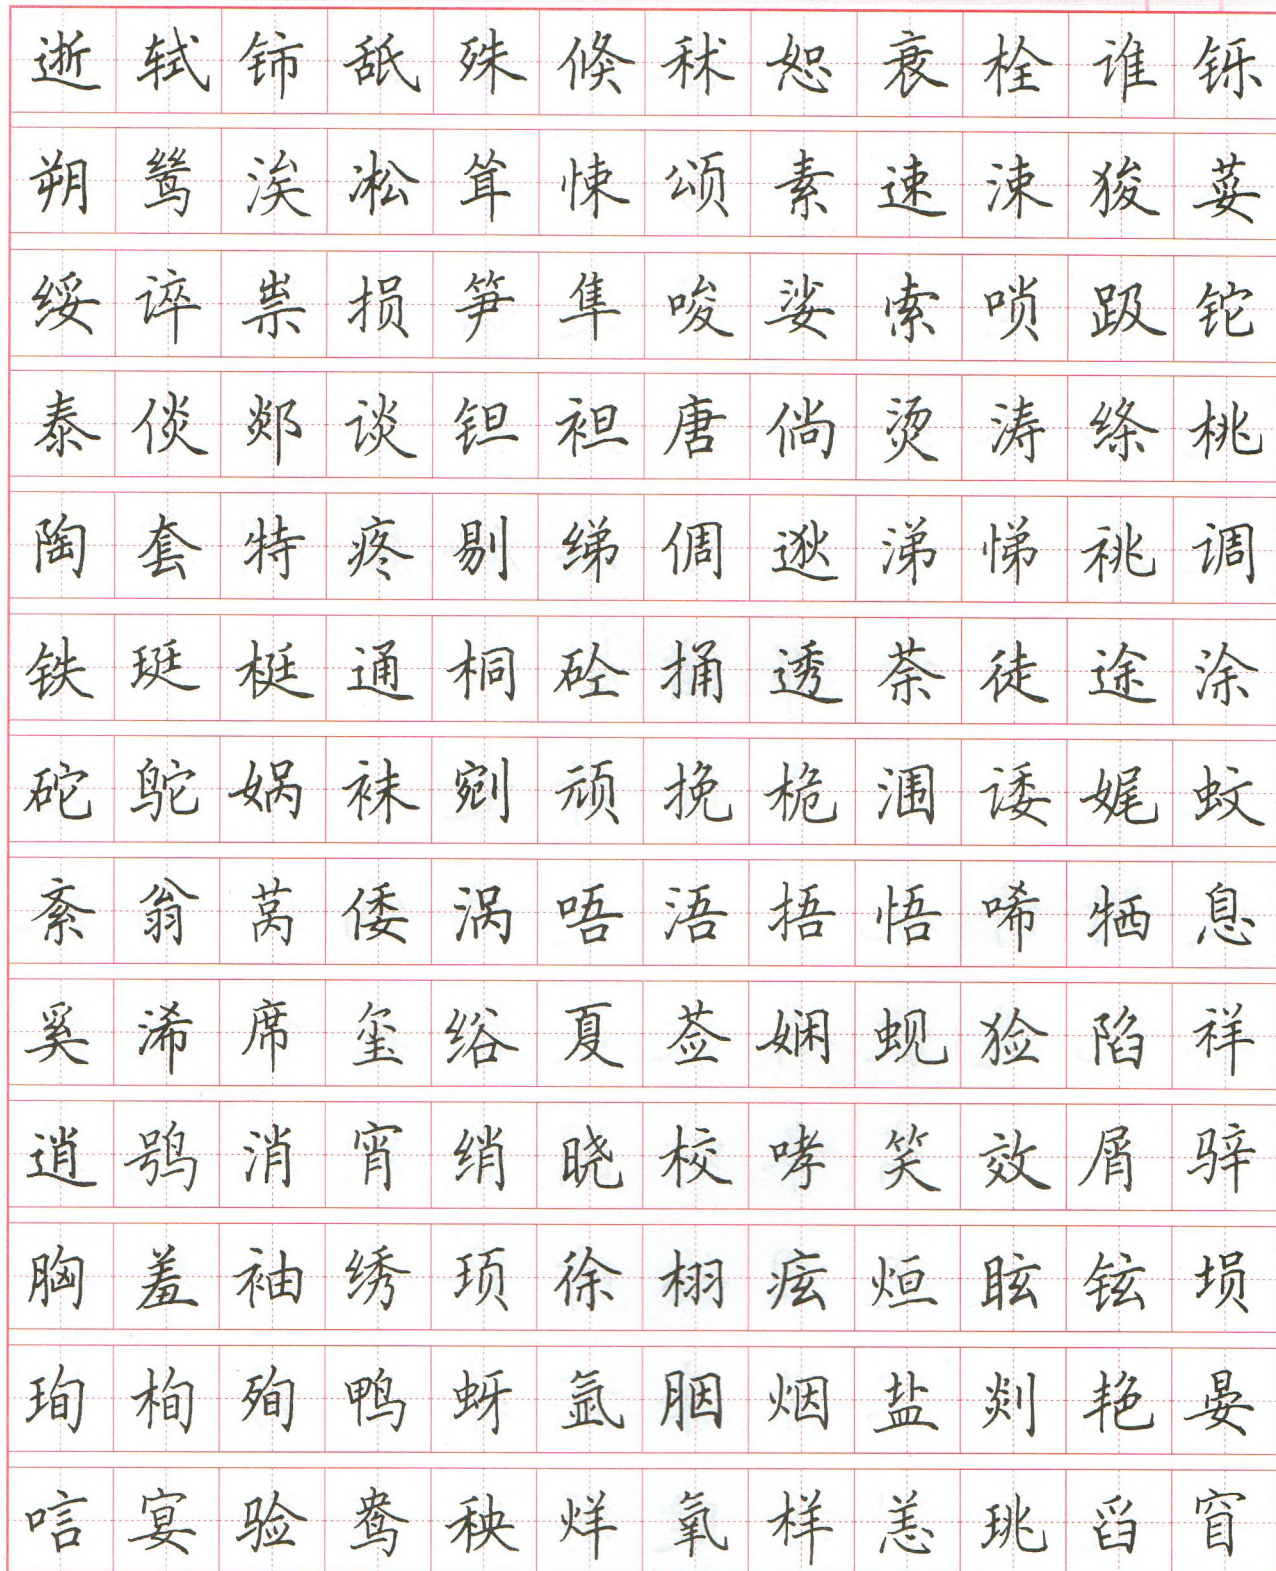 逝轼铈舐殊倏秫恕衰栓谁铄
朔鸶涘凇笫悚颂素速涑狻荽
绥谇祟损笋隼唆娑索唢趿铊
泰倓郯谈钽袒唐倘烫涛绦桃
陶套特疼剔绨倜逖涕悌祧调
铁珽梃通桐砼捅透荼徒途涂
砣鸵娲袜剜顽挽桅涠诿娓蚊
紊翁莴倭涡唔浯捂悟唏牺息
奚浠席玺绤夏莶娴蚬猃陷祥
逍鸮消宵绡晓校哮笑效屑骍
胸羞袖绣顼徐栩痃烜眩铉埙
珣栒殉鸭蚜氩胭烟盐剡艳晏
唁宴验鸯秧烊氧样恙珧舀窅